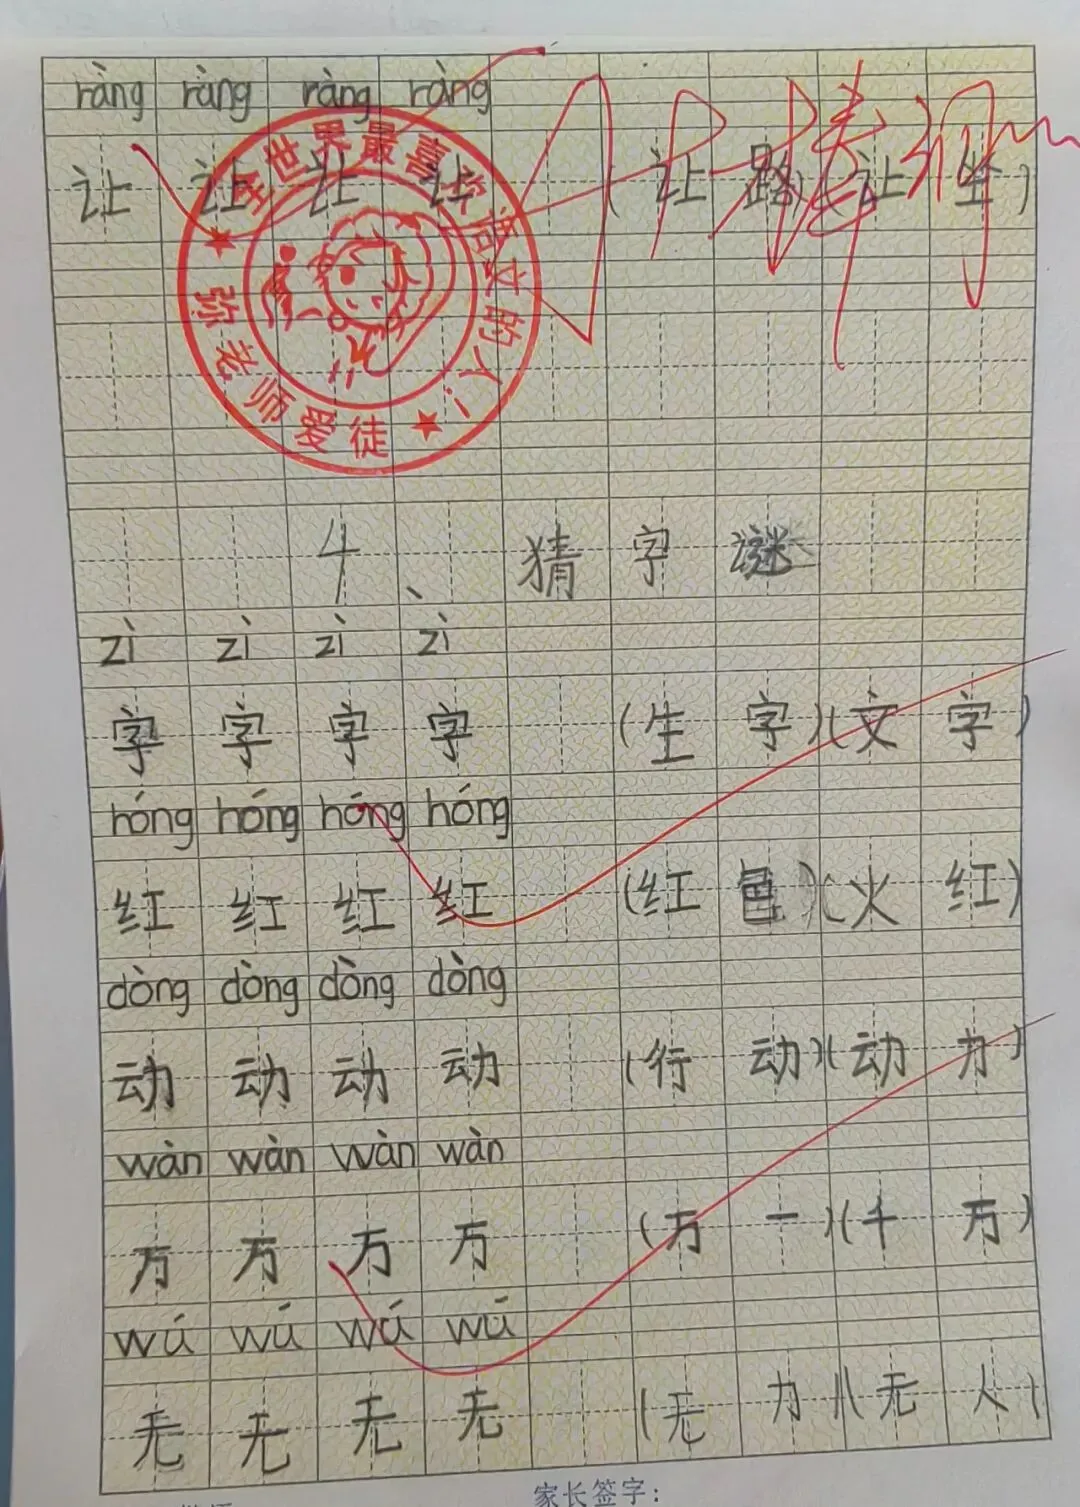 ràng ràng ràng ràng
让 让 让 让 (让 路)(让 坐)
全世界最喜欢语文的人!
你老师爱徒
4、猜字谜
zì zì zì zì
字 字 字 字 (生 字)(文 字)
hóng hóng hóng hóng
红 红 红 红 (红 色)(火 红)
dòng dòng dòng dòng
动 动 动 动 (行 动)(动 力)
wàn wàn wàn wàn
万 万 万 万 (万 一)(千 万)
wú wú wú wú
无 无 无 无 (无 力)(无 人)
家长签字: